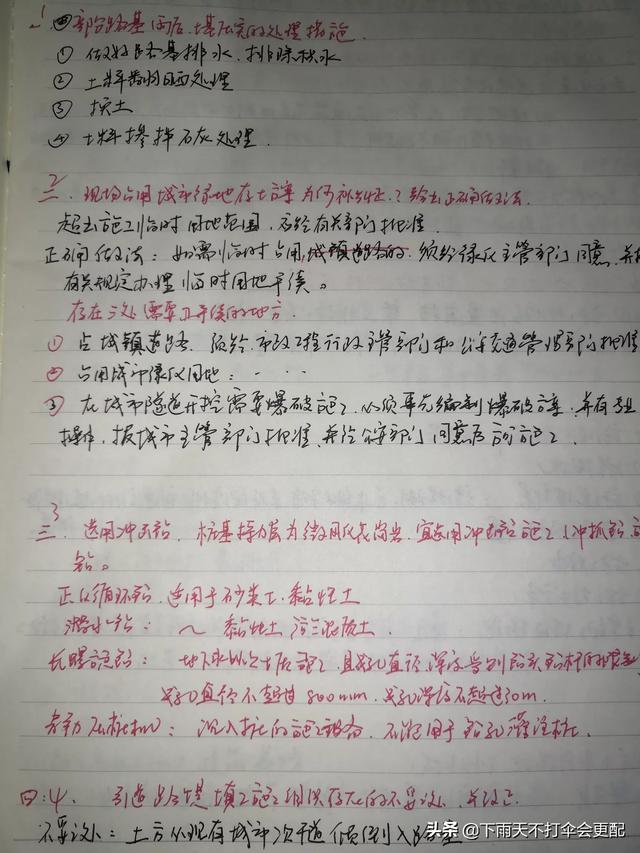 1 部分路基雨后,填压实的处理措施.
① 做好路基排水,排除积水
② 土料翻晒处理
③ 换土
④ 土料掺拌石灰处理.
2 二、现场占用城市绿地存土方案为何补妥?给出正确做法.
超出施工临时用地范围,未经有关部门批准
正确做法:如需临时占用 须经绿化主管部门同意,并按
有关规定办理临时用地手续。
存在三处需要办手续的地方.
① 占城镇道路,须经市政工程行政主管部门和公安交通管理部门批准
② 占用城市绿化用地:- · · ·
③ 在城市隧道开挖需要爆破施工,必须事先编制爆破方案,并有专业
操作,报城市主管部门批准,并经公安部门同意后方可施工.
3 三、选用冲击钻,桩基持力层为微风化花岗岩,宜选用冲击钻施工(冲抓钻
钻。
正反循环钻,适用于砂类土、黏性土
潜水钻:~ 黏性土 淤泥质土.
长螺旋钻:地下水以上土层施工,且成孔直径,深度受到
成孔直径不超过800mm,成孔深度不超过30m.
静力压桩机:沉入桩的施工设备,不能用于钻孔灌注桩.
四:4. 引道路堤填土施工组织存在的不妥处,并改正
不妥处:土方从现有城市次干道倾倒入路基
头条 @下雨天不打伞会更配